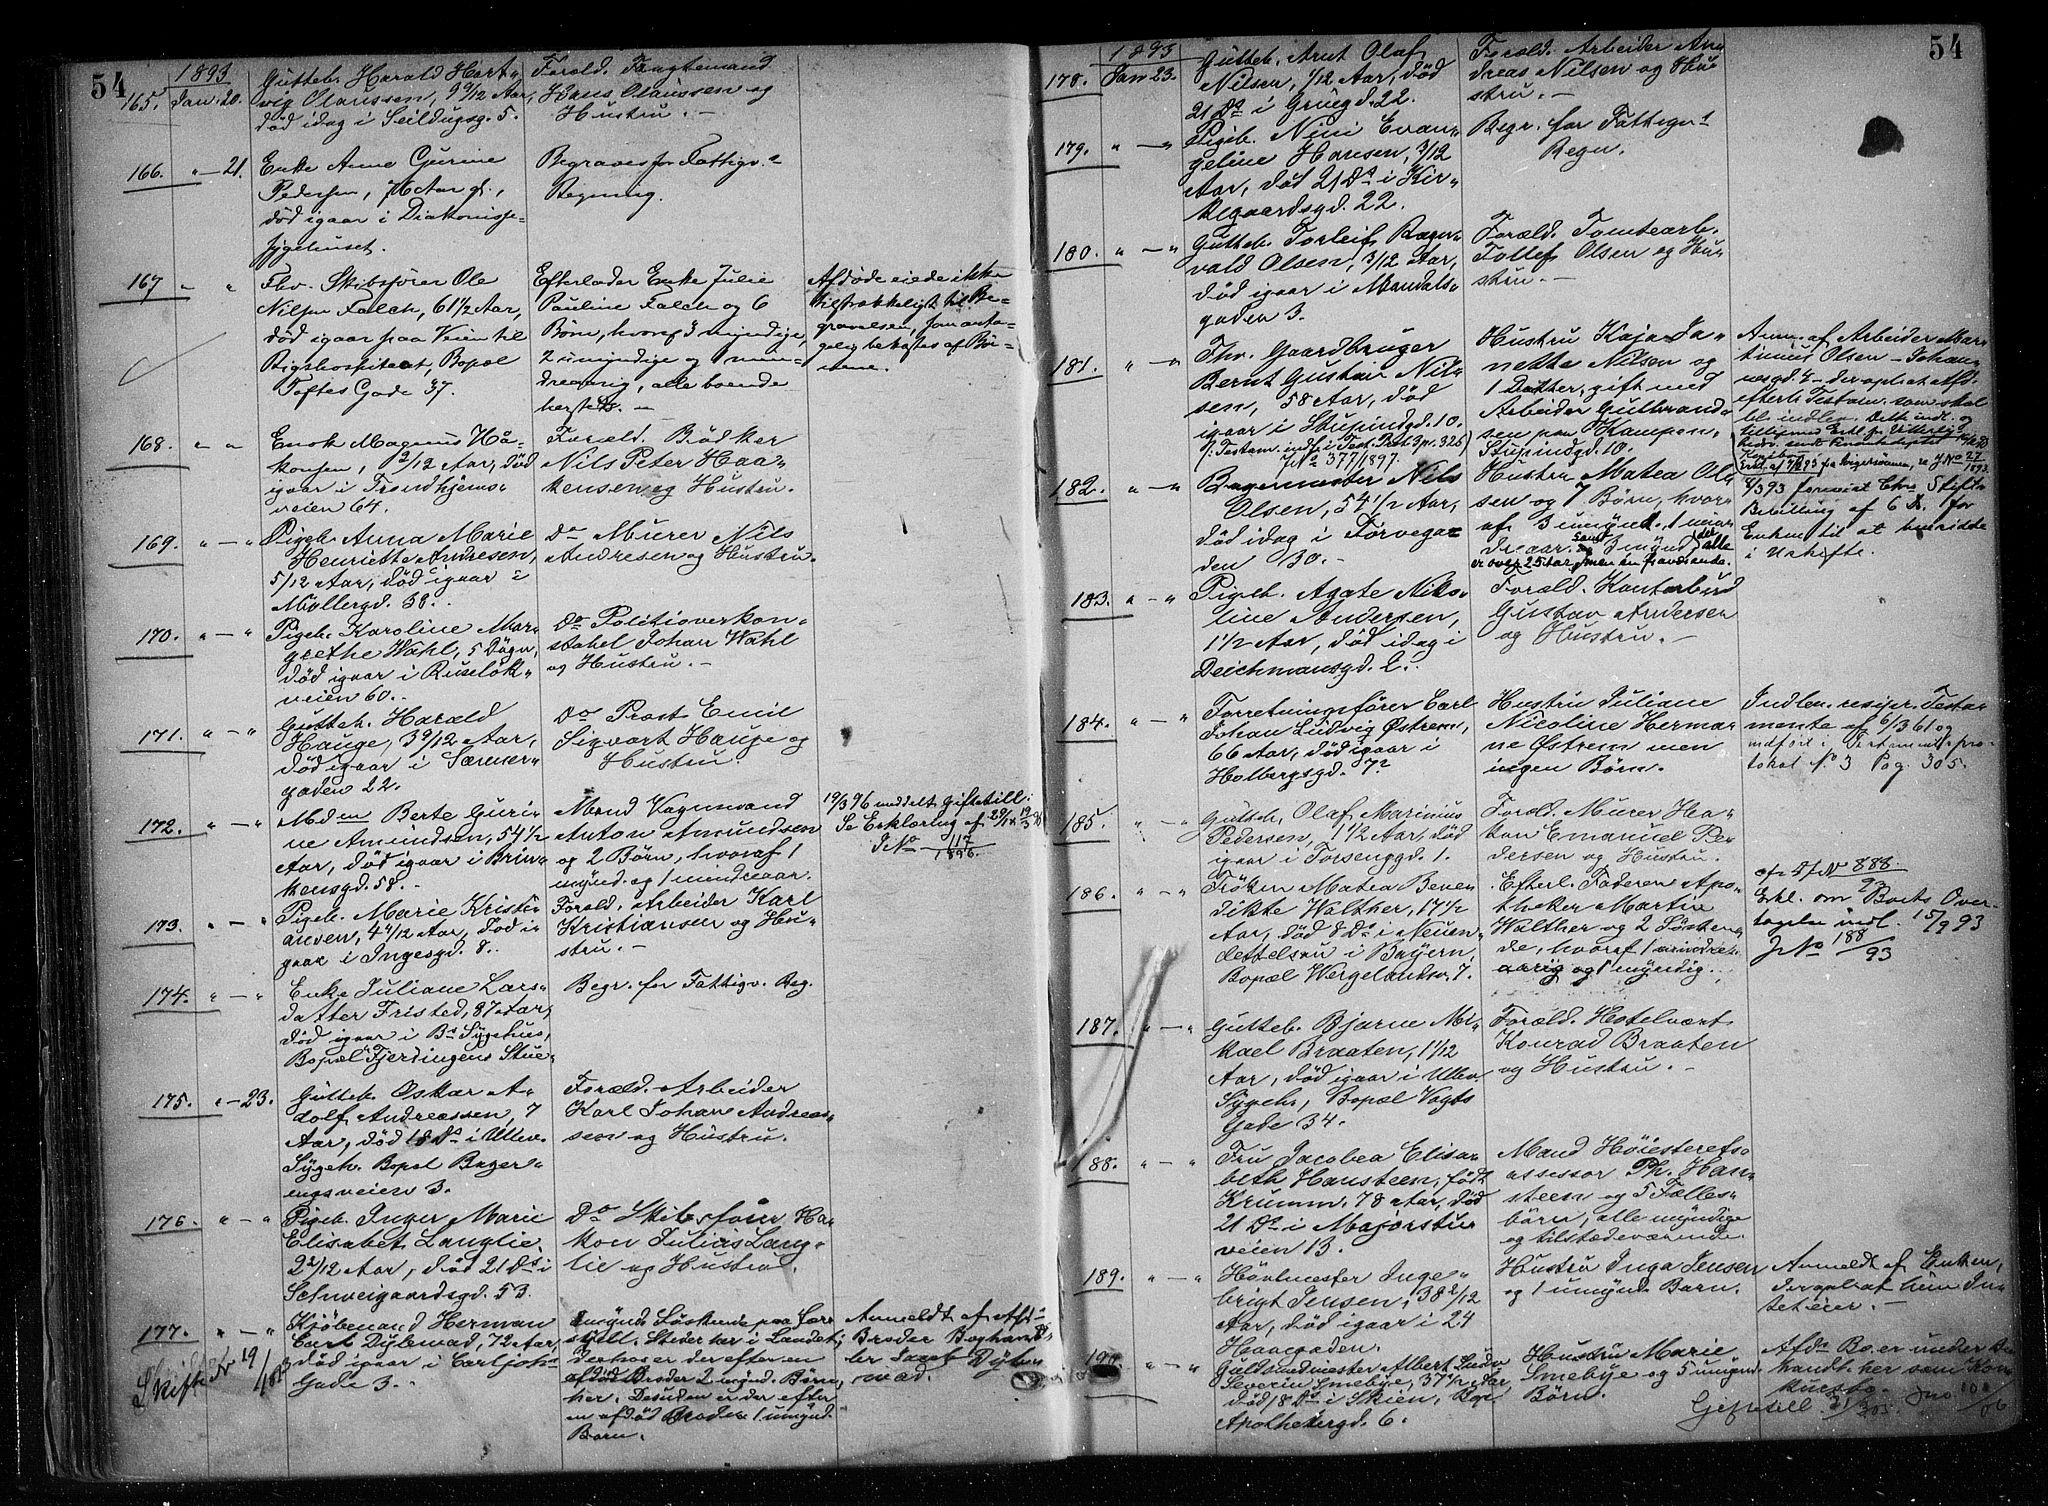 54
1893
165. Jan. 20.
Gutteb. Harald Hart-
vig Olaussen, 9 9/12 Aar,
død idag i Seildugsg. 5.
Foræld.
Olaussen og
Hustru. -
166. " - 21.
Enke Anne Gurine
Pedersen, 76 Aar gl.,
død igaar i Diakonisse-
sygehuset.
Begraves for Fattigv.s
Regning.
167 " "
Fhv. Skibsfører Ole
Nilsen Falch, 61 1/2 Aar,
død igaar paa Veien til
Rigshospitalet, Bopæl
Toftes Gade 37.
Efterlader Enke Julie
Pauline Falch og 6
Børn, hvoraf 3 myndige,
2 umyndige og 1 min-
dreaarig, alle boende
hersteds. -
Afdøde eiede ikke
tilstrækkeligt til Be-
gravelsen, som anta-
gelig bekostes af Bør-
nene.
168. " "
Enok Magnus Haa-
konsen, 2/12 Aar, død
igaar i Trondhjems-
veien 64.
Foræld. Bødker
Nils Peter Haa-
kensen og Hustru.
169. " - "
Pigeb. Anna Marie
Henriette Andresen,
5/12 Aar, død igaar i
Møllergd. 38.
Do Murer Nils
Andresen og Hustru.
170. " - "
Pigeb. Karoline Mar-
grethe Wahl, 5 Døgn,
død igaar i Ruseløk-
veien 60.
Do Politioverkon-
stabel Johan Wahl
og Hustru. -
171. " - "
Gutteb. Harald
Hauge, 3 9/12 Aar,
død igaar i Særner-
gaden 22.
Do Prost Emil
Sigvart Hauge og
Hustru.
172. " - "
Mdm Berte Guri-
ne Amundsen, 54 1/2
Aar, død igaar i Brin-
kensgd. 58. -
Mand Vognmand
Anton Amundsen
og 2 Børn, hvoraf 1
mynd. og 1 mindreaar.
19/3 96 meddelt Giftetill:
Se Erklæring af
JNo 117/1896.
173. " - "
Pigeb. Marie Kristi-
ansen, 4 4/12 Aar, død i-
gaar i Ingesgd. 8.
Foræld. Arbeider Karl
Kristiansen og Hu-
stru. -
174. " - "
Enke Juliane Lars-
datter Fristed, 87 Aar,
død igaar i Bs Sygehus,
Bopæl Fjerdingens Stue.
Begr. for Fattigv. Reg.
175. " - 23.
Gutteb. Oskar A-
dolf Andreassen, 7
Aar, død 18 Ds i Ullev.
Sygeh. Bopæl Bager-
engsveien 3.
Foræld. Arbeider
Karl Johan Andreas-
sen og Hustru.
176. " - "
Pigeb. Inger Marie
Elisabet Langlie,
2 2/12 Aar, død 21 Ds i
Schweigaardsgd. 53.
Do Skibsfører Ha-
kon Julius Lang-
lie og Hustru.
177. " - "
Kjøbmand Herman
Carl Dybwad, 72 Aar,
død igaar i Carljoh.
Gade 3. -
Umynd. Søskende paa for-
skjell. Steder her i Landet;
desuden er der efter en
afdød Broder 2 mynd. Børn,
her. Desuden er der efter
en afdød Broder 1 umynd.
Barn.
Anmeldt af Afd.s
Broder Boghand-
ler Jacob Dyb-
wad.
54
1893
178. Jan 23.
Gutteb. Arnt Olaf
Nilsen, 1/12 Aar, død
21 Ds i Grüngd. 22.
Foræld. Arbeider An-
dreas Nilsen og Hu-
stru. -
179. " - "
Pigeb. Nini Evan-
geline Hansen, 3/12
Aar, død 21 Ds i Kir-
kegaardsgd. 22.
Begr. for Fattigv.s
Regn.
180. " - "
Gutteb. Torleif Ragn-
vald Olsen, 3/12 Aar,
død igaar i Mandals-
gaden 3.
Foræld. Tomtearb.
Tollef Olsen og Hu-
stru. -
181. " - "
Fhv. Gaardbruger
Bernt Gustav Nil-
sen, 58 Aar, død
igaar i Stupindgd. 10.
Testam. indf. i Test. Prot. 3 pa. 325
JNo 377/1897.
Hustru Kaja Ja-
nette Nilsen og
1 Datter, gift med
Arbeider Gulbrand-
sen paa Kampen,
Stupindsgd. 10.
Anm. af Arbeider Mar-
tinius Olsen - Johan-
nesgd. 4 - der oplyst at Afd.
efterl. Testam. som skal
182. " - "
Bagermester Nils
Olsen, 54 1/2 Aar,
død idag i Torvega-
den 30. -
Hustru Matea Ol-
sen og 7 Børn, hvor-
af 3 umynd. 1 min-
dreaar. samt 3 mynd., alle
er over 25 Aar, men en fraværende.
8/3 93 forevist Chr. Stifts
Bevilling af 6 ds. for
Enken til at hensidde
i Uskifte.
183. " - "
Pigeb. Agate Niko-
line Andersen,
1 1/2 Aar, død idag i
Deichmansgd. 2.
Foræld. Kontorbud
Gustav Andersen
og Hustru. -
184. " - "
Forretningsfører Carl
Johan Ludvig Østrem,
66 Aar, død igaar i
Holbergsgd. 7.
Hustru Juliane
Nicoline Herma-
ne Østrem men
ingen Børn.
Indlev. resipr. Testa-
mente af 6/3 61 og
indført i Testamentspro-
tokol No. 3 Pag. 305.
185. " - "
Gutteb. Olaf Marinius
Pedersen, 1 1/2 Aar, død
igaar i Torsenggd. 1.
Foræld. Murer Ha-
kon Emanuel Pe-
dersen og Hustru.
186. " - "
Frøken Matea Bene-
dikte Walther, 17 1/2
Aar, død 8 Ds i Neuen-
dettelsau i Bayern,
Bopæl Wergelandsv. 7.
Efterl. Faderen Apo-
theker Martin
Walther og 2 Søsken-
de, hvoraf 1 mindre-
aarig og 1 myndig.
888.
Erkl. om Boets Over-
tagelse indl. 15/9 93
JNo 188/93
187. " - "
Gutteb. Bjarne Mi-
kael Braaten, 1 1/12
Aar, død igaar i Ullev.
Sygeh., Bopæl Vogts
Gade 34.
Foræld. Hotelvært
Konrad Braaten
og Hustru. -
188. " - "
Fru Jacobea Elisa-
beth Hansteen, født
Krumm, 78 Aar, død
21 Ds i Majorstu-
veien 13.
Mand Høiesterets-
assessor Ph. Han-
steen og 5 Fælles-
børn, alle myndige
og tilstedeværende.
189. " - "
Hövlmester Inge-
brigt Jensen, 38 2/12
Aar, død igaar i 24
Haavgaden.
Hustru Inga Jensen
og 1 umynd. Barn.
Anmeldt af Enken,
der oplyst at hun In-
tet eier. -
190 " - "
Guldsmedmester Albert Ludv.
Severin Smebye, 37 1/2 Aar
død 18 Ds i Skien, Bop.
Apothekergd. 6.
Hustru Marie
Smebye og 5 umynd.
Børn.
Afd. Bo er under Be-
handl. her som Kon-
kursbo.
Giftetill